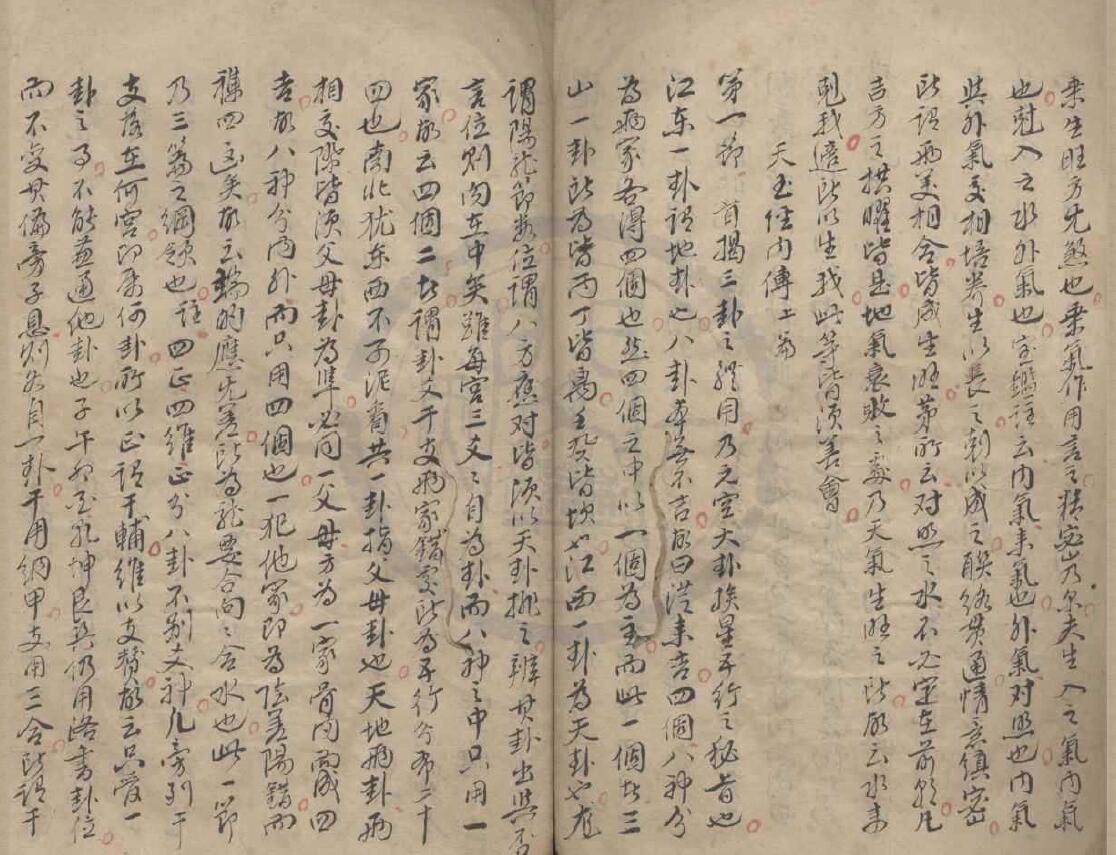 乘生旺方先煞也乘氣作用言之精密乃尔夫生入之氣內氣
也尅入之水外氣也宝鑑註云內氣来氣也外氣对照也內氣
與外氣交相培养生以長之剋以成之联絡贯通情意縝密
此謂两美相合皆成生旺第所云对照之水不必定在前朝凡
吉方之拱曜皆是地氣衰敗之處乃天氣生旺之所故云水来
剋我適所以生我此等皆須善會
天玉経內傳上篇
第一節首揭三卦之綱用乃元空大卦挨星五行之秘旨也
江东一卦謂地卦也八卦本無不吉故曰従来吉四個八神分
為两家各得四個也然四個之中以一個為主而此一個者三
山一卦所為皆丙丁皆离壬癸皆坎也江西一卦為天卦也龙
謂陽龙節数位謂八方應对皆須以天卦排之辨其卦出與否
言位則向在中矣雖每宮三爻之自為卦而八神之中只用一
家故云四個二者謂卦爻干支两家錯處所為五行分布二十
四也南北犹东西不可泥看共一卦指父母卦也天地两卦两
相交階皆須父母卦為準必同一父母方為一家骨肉而成四
吉故八神分內外而只用四個也一犯他家即為陰差陽錯而
襍四凶矣故云端的應先差此為龙要合向之合水也此一節
乃三篇之綱領也註四正四維正分八卦不别爻神凡旁列干
支落在何宮即属何卦所以正謂干輔維以支贊故云只管一
卦之事不能兼通他卦也子午卯酉乾坤艮巽仍用洛書卦位
而不受其偏旁子息則各自一卦干用納甲支用三合此謂干